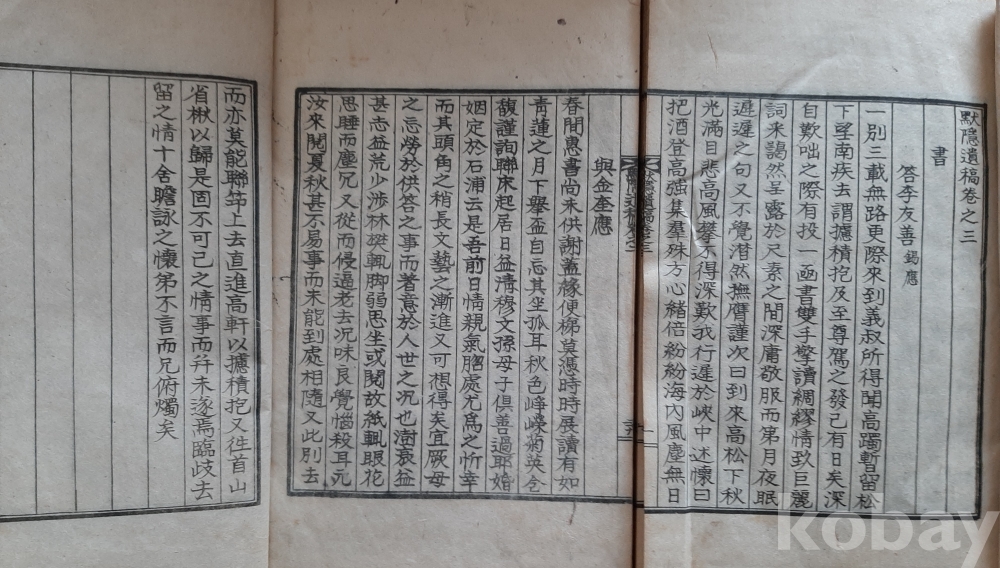 默隱遺稿卷之三
書
答李友善 錫應
一別三載無路更際來到義叔所得聞高躅暫留松
下堊南疾去謂攄積抱及至尊駕之發已有日矣深
自歎咄之際有投一函書雙手擎讀綢繆情致巨麗
詞采藹然呈露於尺素之間深庸敬服而第月夜眠
遲遲之句又不覺潸然撫膺謹次曰到來高松下秋
光滿目悲高風攀不得深歎我行遲於峽中述懷曰
把酒登高強集羣殊方心緖倍紛紛海內風塵無日
與金奎應
春間惠書尚未供謝盖緣便梯莫憑時時展讀有如
靑蓮之月下舉盃自忘其坐孤耳秋色崢嶸菊英含
馥謹詢聯床起居日益淸穆文孫母子俱善過耶婚
姻定於石浦云是吾前日情親氣臭處尤爲之忻幸
而其頭角之稍長文藝之漸進又可想得矣宜厥母
之忘勞於供答之事而著意於人世之况也澍衰益
甚志益荒少涉林樊輒脚弱思坐或閱故紙輒眼花
思睡而塵冗又從而侵過老去况味良覺惱殺耳元
汝來閱夏秋甚不易事而未能到處相隨又此別去
而亦莫能聯笻上去直進高軒以攄積抱又徃首山
省楸以歸是固不可已之情事而幷未遂焉臨歧去
留之情十舍瞻詠之懷第不言而兄俯燭矣
kobay